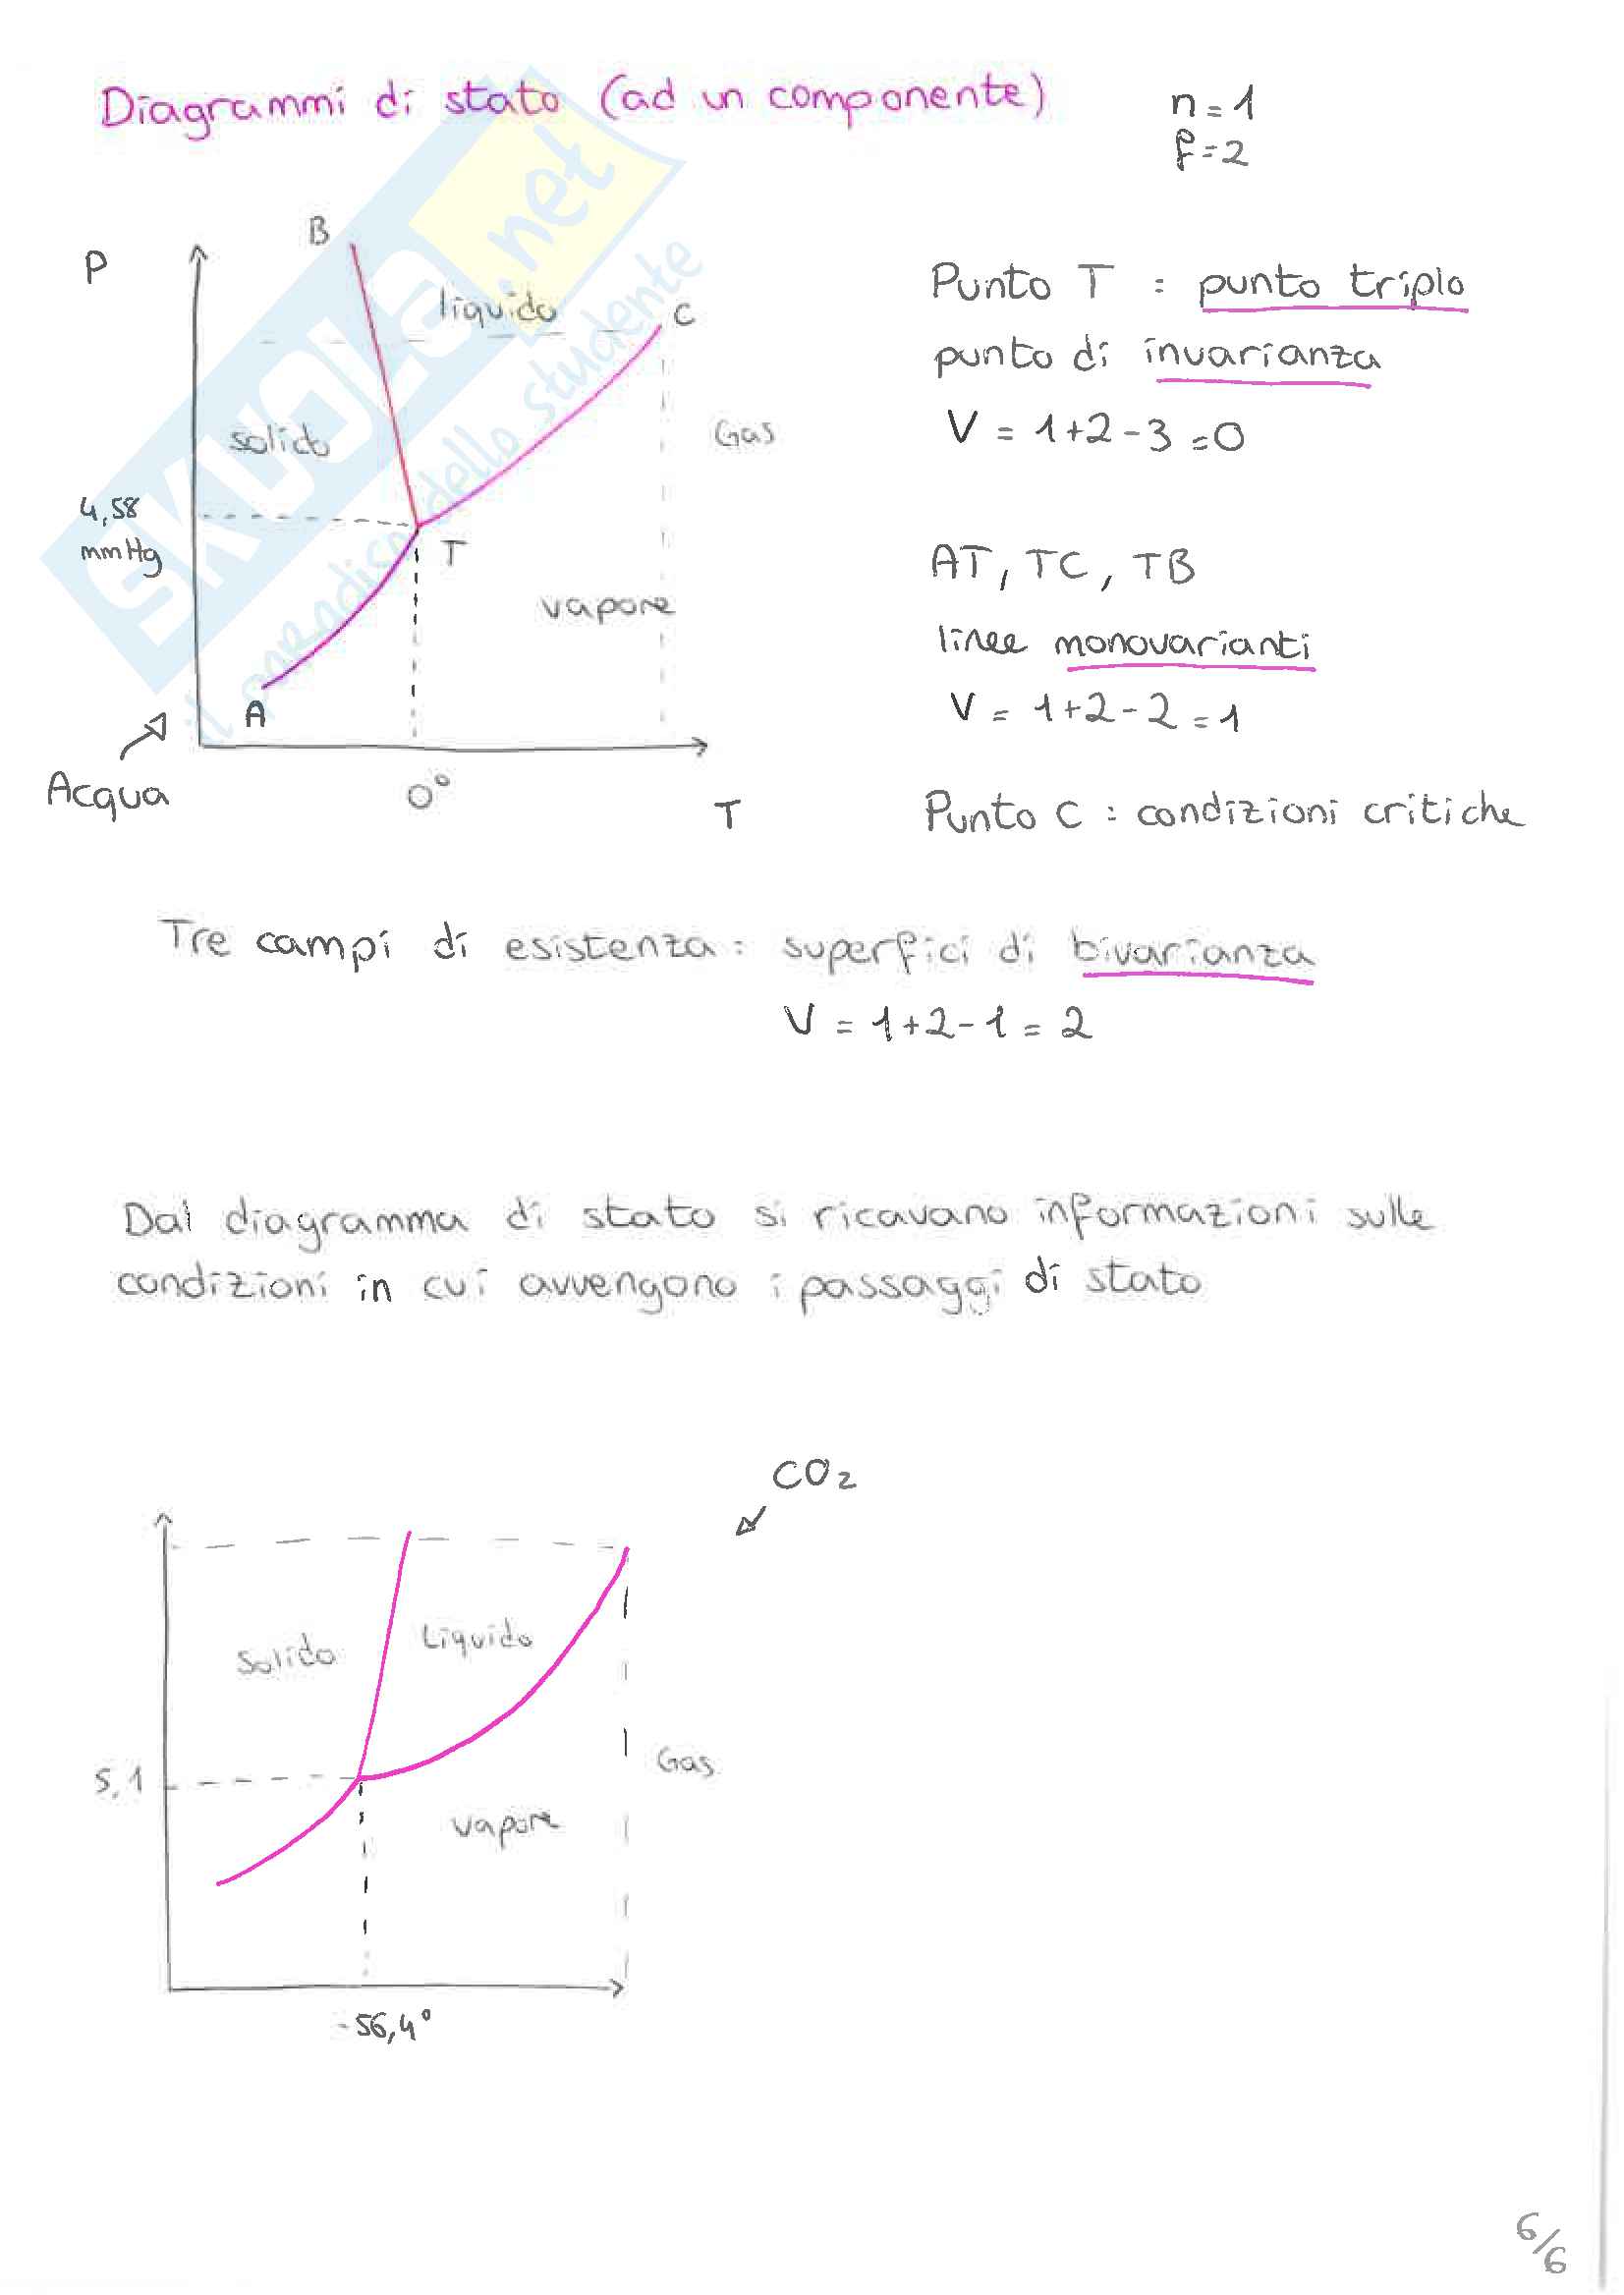 Diagrammi di stato (ad un componente)
n=1
f=2
B
P
liquido
C
solido
Gas
4,58
mmHg
T
vapore
A
Acqua
0°
T
Punto T : punto triplo
punto di invarianza
V = 1+2-3=0
AT, TC, TB
linee monovarianti
V = 1+2-2=1
Punto C : condizioni critiche
Tre campi di esistenza: superfici di bivarianza
V = 1+2-1=2
Dal diagramma di stato si ricavano informazioni sulle
condizioni in cui avvengono i passaggi di stato
CO2
Solido
Liquido
5,1
Gas
vapore
-56,4°
6/6
SKUOLA.net
il paradiso dello studente